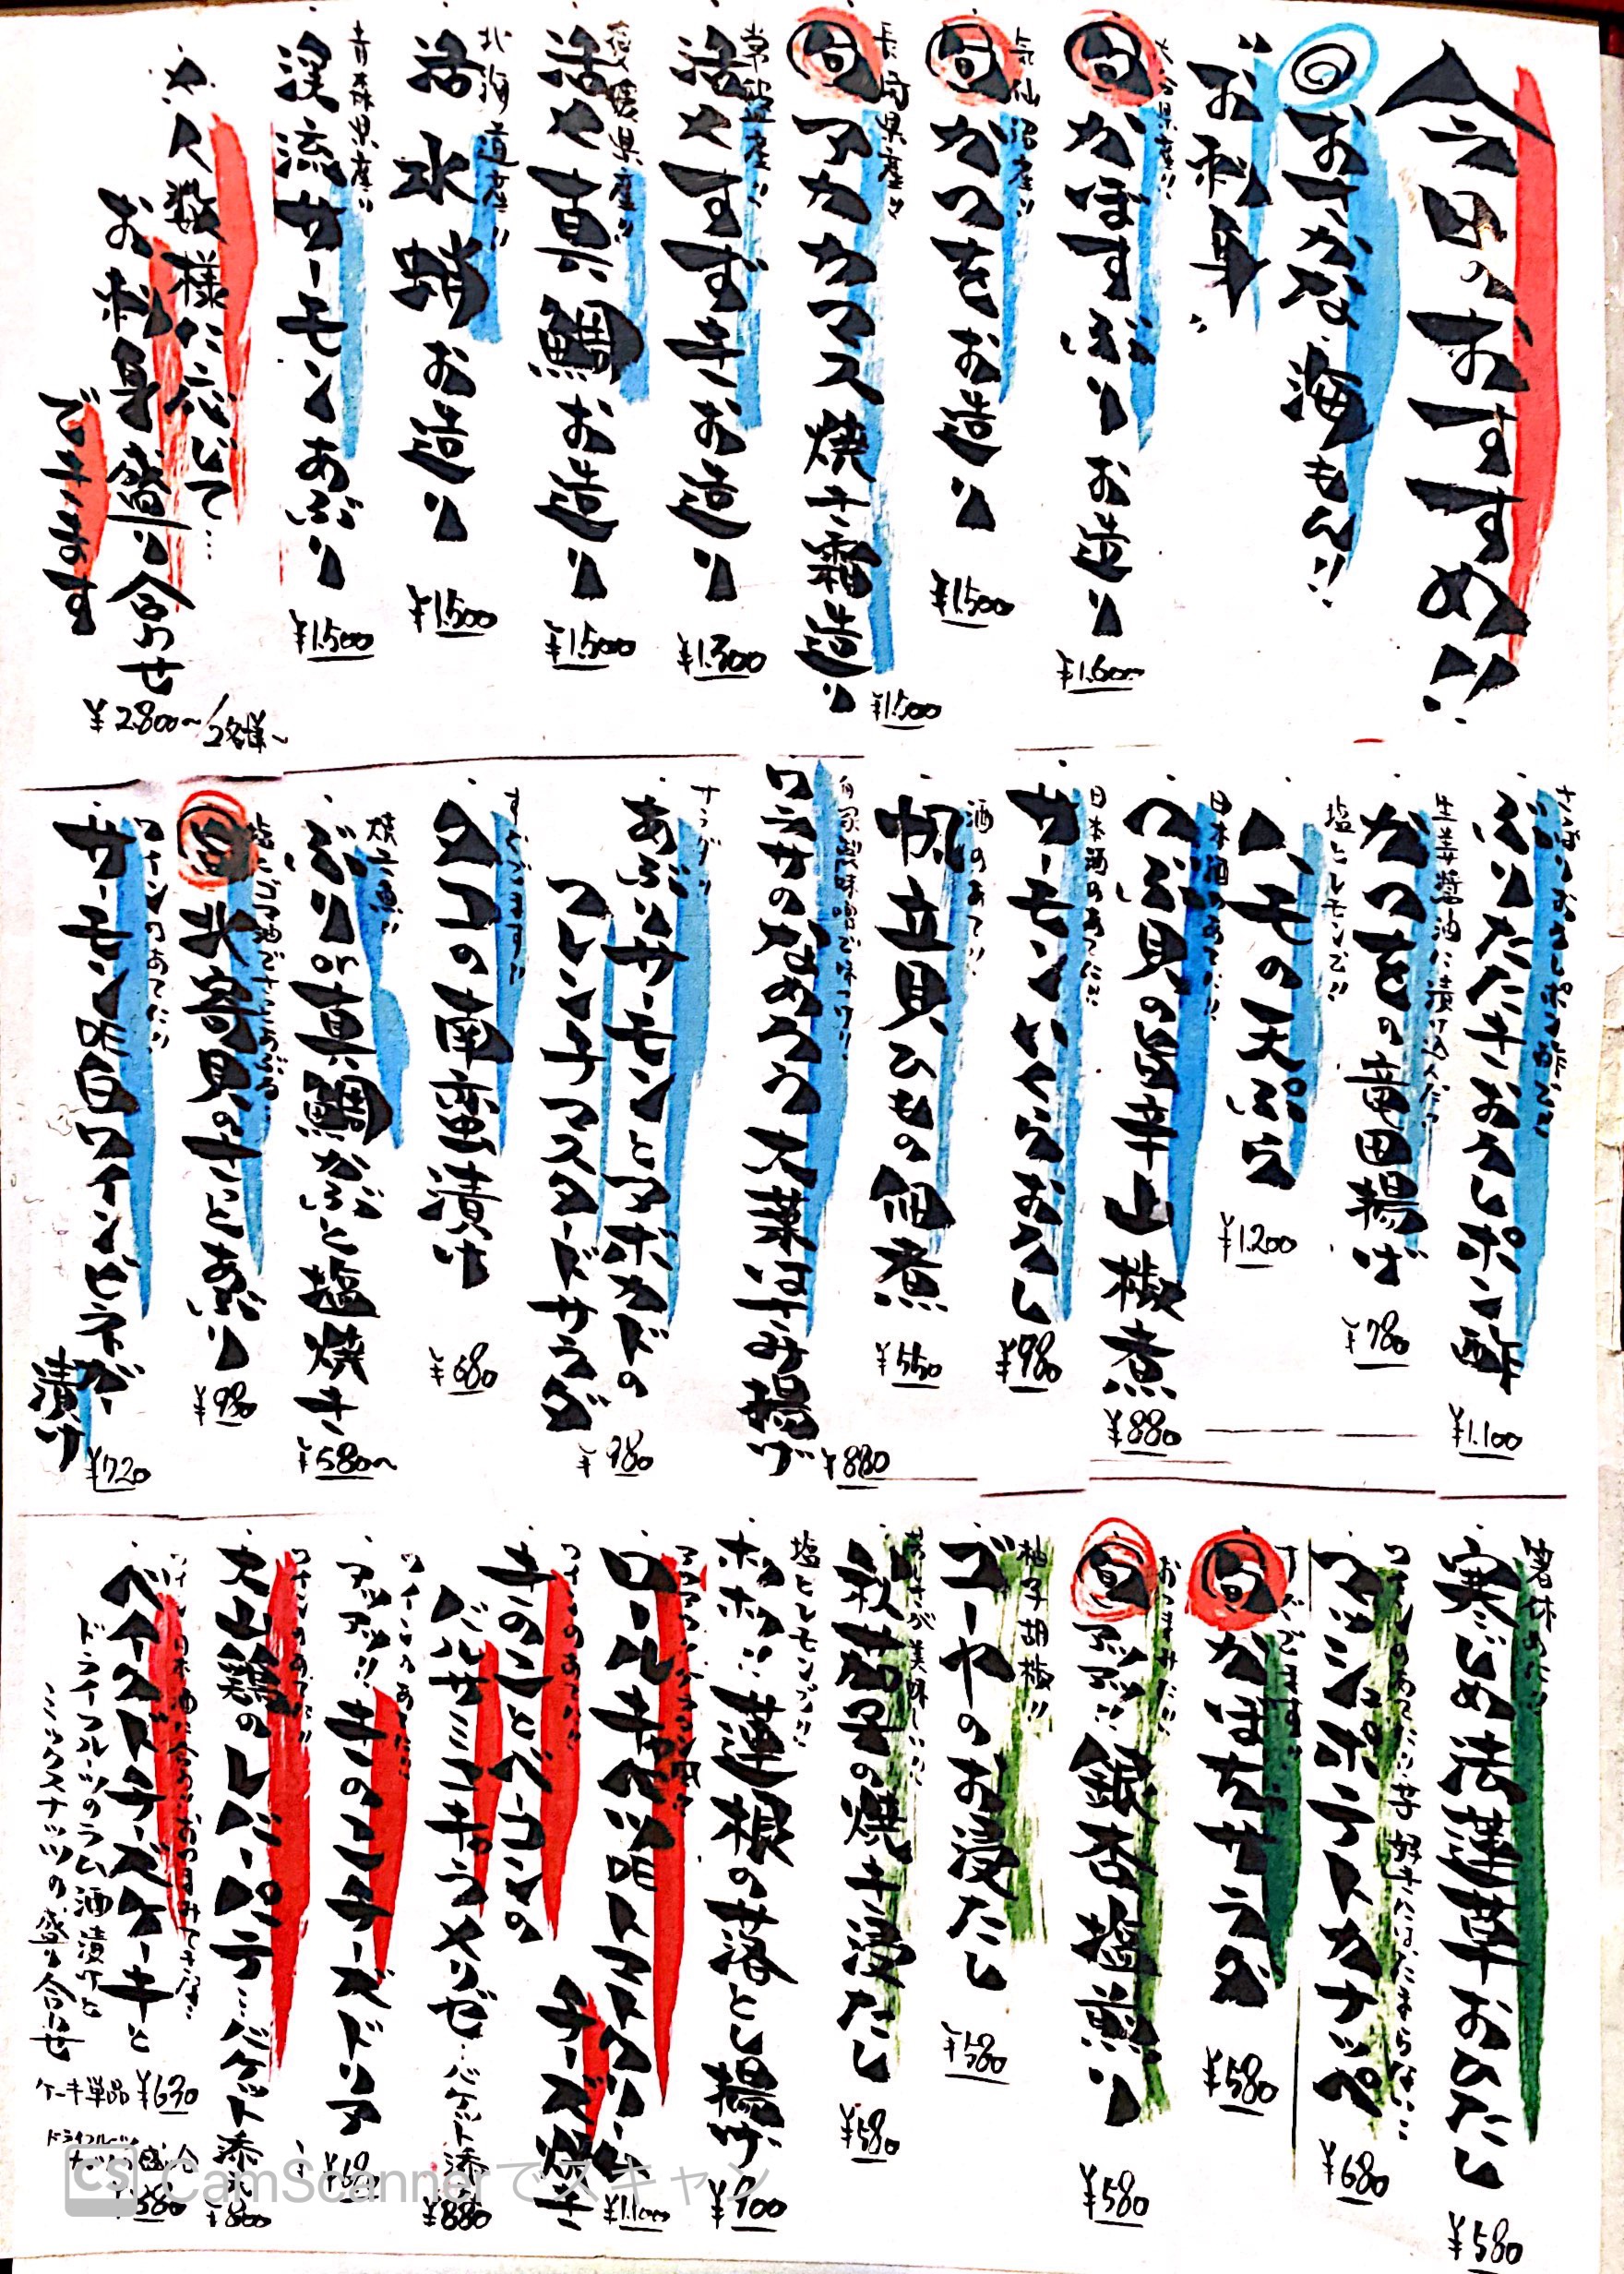 今日のおすすめ!!
おさかな海もん!!
お刺身
大分県産!!
旬 かぼすぶりお造り
¥1.600
気仙沼産!!
旬 かつをお造り
¥1.500
長崎県産!!
旬 アカカマス焼き霜造り
¥1.500
常磐産!!
活〆すずきお造り
¥1.500
愛媛県産!!
活〆真鯛お造り
¥1.500
北海道産!!
活水蛸お造り
¥1.500
青森県産!!
渓流サーモンあぶり
¥1.500
〆人数様に応じて…
お刺身盛り合わせ
できます
¥2.800〜/2名様〜
さっぱりおろしポン酢で!!
ぶりたたきおろしポン酢
¥1.100
生姜醤油に漬け込んだ
かつをの竜田揚げ
¥780
塩とレモンで!!
ハモの天ぷら
¥1.200
日本酒のあてに!!
つぶ貝の旨辛山椒煮
¥880
日本酒のあてに!!
サーモンいくらおろし
¥980
酒のあて!!
帆立貝ひもの佃煮
¥550
自家製味噌で味つけ!!
ワラサのなめろう大葉はさみ揚げ
¥880
サラダ!!
あぶりサーモンとアボカドの
フレンチマスタードサラダ
¥980
すぐでます!!
タコの南蛮漬け
¥680
焼き魚!!
ぶりor真鯛かぶと塩焼き
¥580〜
塩とゴマ油でさっとあぶる…
旬 北寄貝のさっとあぶり
¥980
ワインのあてに!!
サーモン昆白ワインビネガー
漬け
¥720
箸休めに!!
寒じめ法蓮草おひたし
¥580
ワインのあてに!!芋好きにはたまらない…
マッシュポテトカナッペ
¥680
すぐでます!!
旬 かぼちゃサラダ
¥580
おつまみに!!
旬 アツアツ!!銀杏塩煎り
¥580
柚子胡椒!!
ゴーヤのお浸たし
¥580
冷やが美味しい!!
秋茄子の焼き浸たし
¥580
塩とレモンで!!
ホクホク!!蓮根の落とし揚げ
¥700
アツアツグラタン風!!
ロールキャベツ昆トマトクリーム
チーズ焼き
¥1.100
ワインのあてに!!
きのことベーコンの
バルサミコキャラメリゼ…バケット添え
¥880
ワインのあてに!!
アツアツ!!きのこチーズドリア
¥680
ワインのあて!!
大山鶏のレバーパテ…バケット添え
¥800
ワイン、日本酒に合う!!おつまみです!!
ベイクドチーズケーキと
ドライフルーツのラム酒漬けと
ミックスナッツの盛り合せ
ケーキ単品 ¥630
ドライフルーツ
ナッツ盛合
¥580
CS CamScannerでスキャン